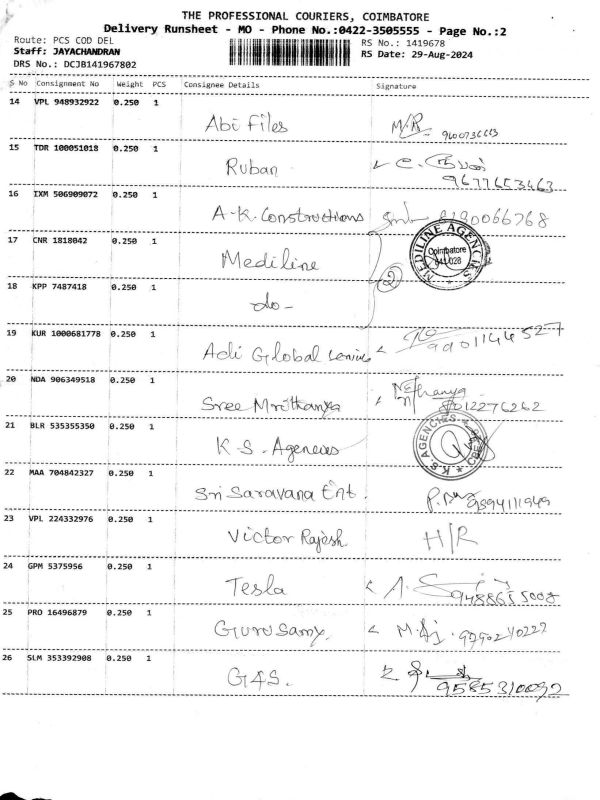 THE PROFESSIONAL COURIERS, COIMBATORE
Delivery Runsheet - MO - Phone No.:0422-3505555 - Page No.:2
Route: PCS COD DEL RS No.: 1419678
Staff: JAYACHANDRAN RS Date: 29-Aug-2024
DRS No.: DCJB141967802
S No Consignment No Weight PCS Consignee Details Signature
14 VPL 948932922 0.250 1
Abi Files
15 TDR 100051018 0.250 1
Ruban 9677653463
16 IXM 506909072 0.250 1
A.K. Constructions 8190066768
17 CNR 1818042 0.250 1
Mediline MEDILINE AGENCIES Coimbatore 641 028
18 KPP 7487418 0.250 1 2
do -
19 KUR 1000681778 0.250 1
Adi Global 9901144527
20 NDA 906349518 0.250 1
Sree Mrithanya 9012276262
21 BLR 535355350 0.250 1
K.S. Agencies K.S. AGENCIES
22 MAA 704842327 0.250 1
Sri Saravana Ent. 9894111949
23 VPL 224332976 0.250 1
Victor Rajesh H/R
24 GPM 5375956 0.250 1
Tesla 9488655008
25 PRO 16496879 0.250 1
Gurusamy.
26 SLM 353392908 0.250 1
G4S. 9585310092